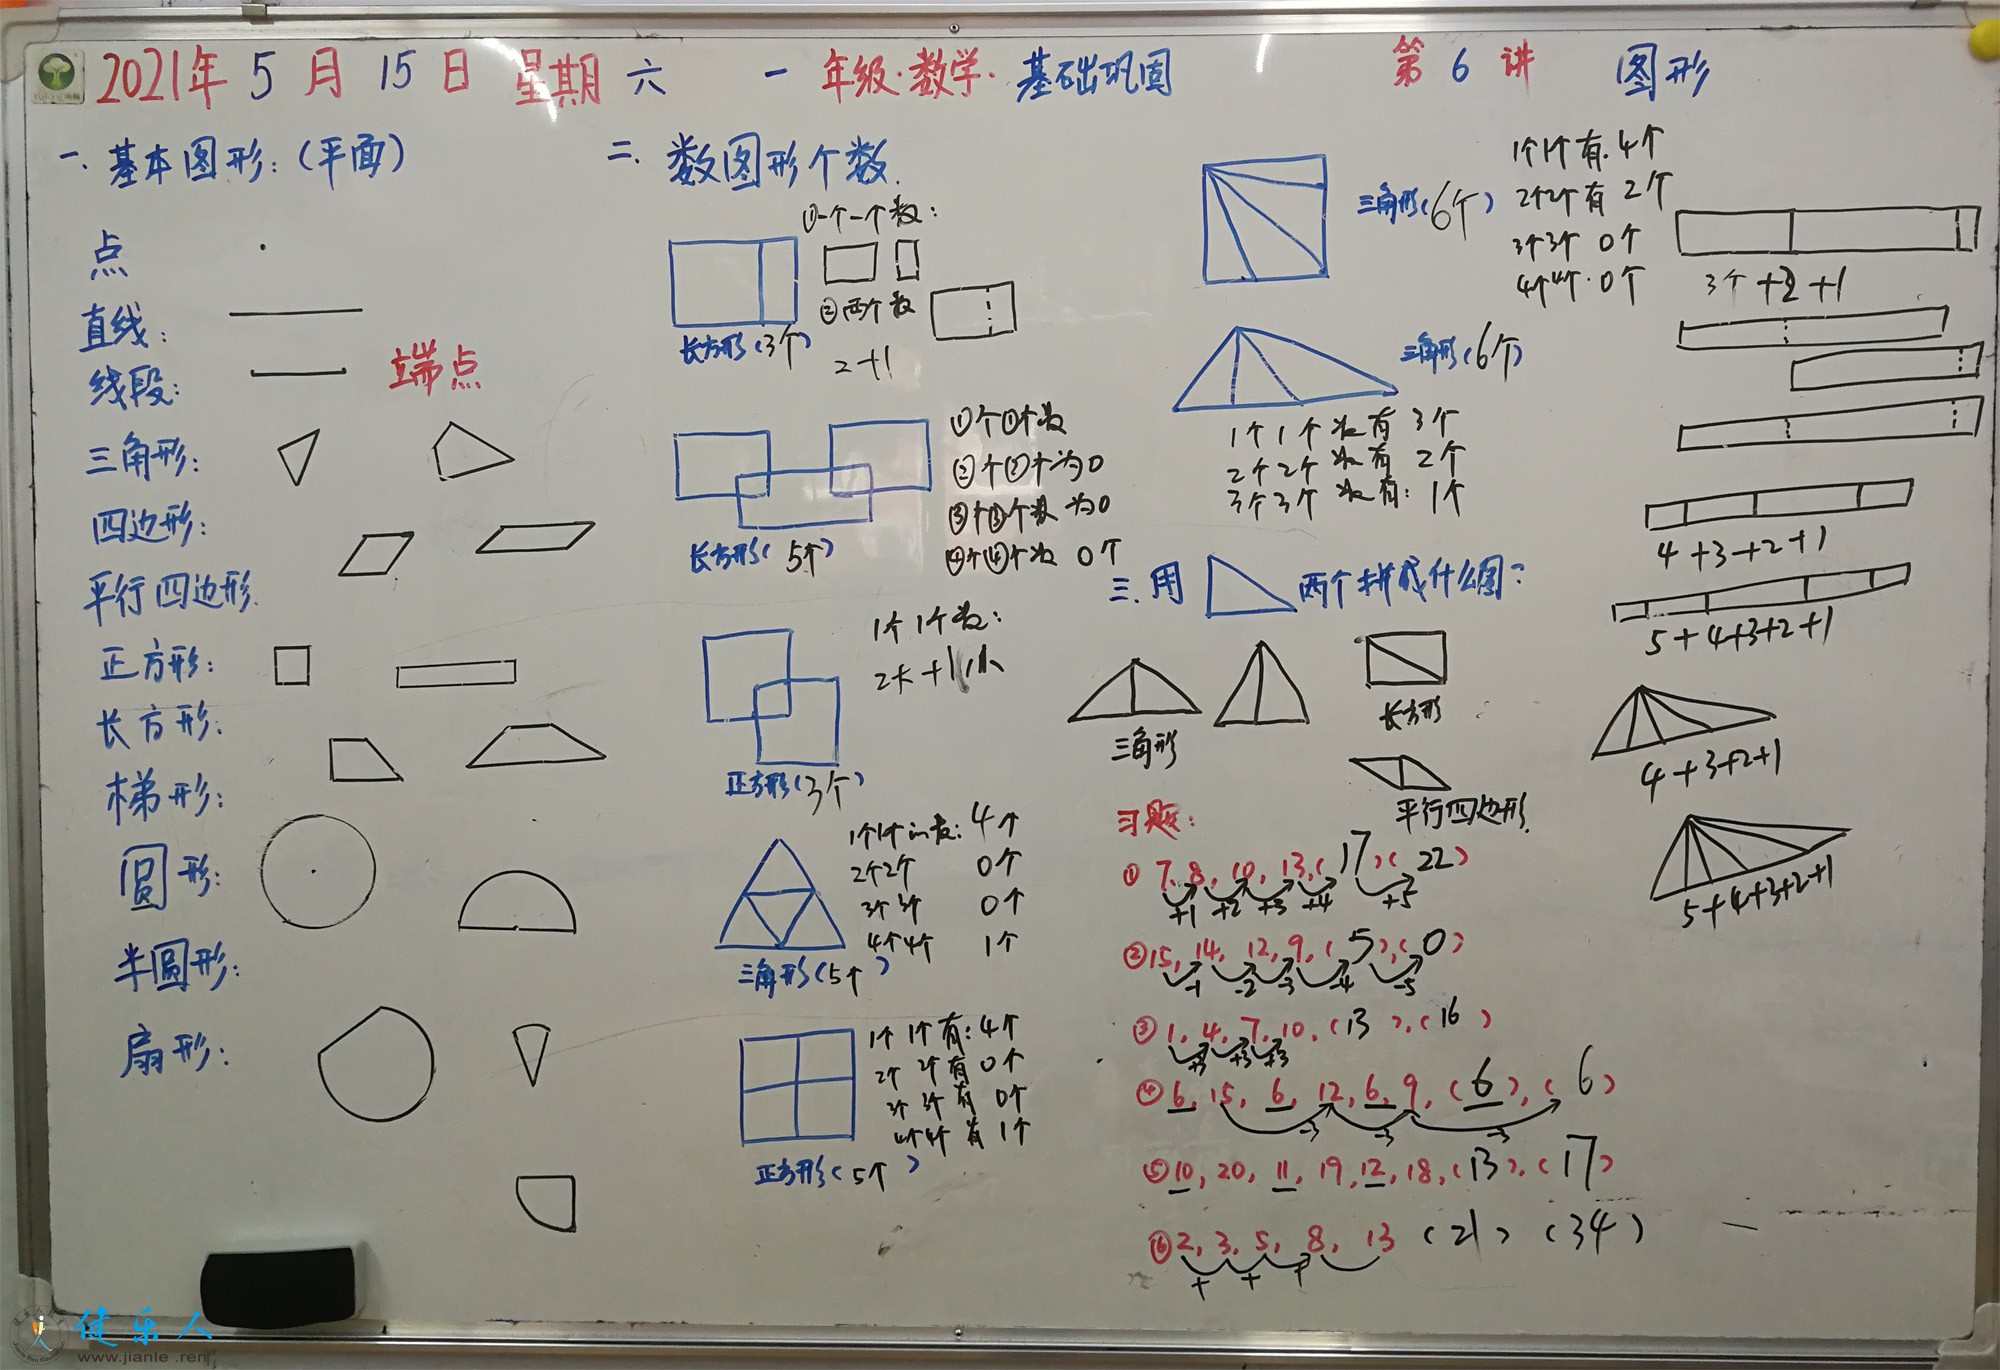 2021年5月15日 星期六 一年级·数学·基础巩固 第6讲 图形
一.基本图形:(平面)
点
直线:
线段:
端点
三角形:
四边形:
平行四边形.
正方形:
长方形:
梯形:
圆形:
半圆形:
扇形:
二.数图形个数.
①一个一个数:
②两个数
长方形(3个)
2+1
①个①个数
②个②个为0
③个③个数为0
④个④个数 0个
长方形(5个)
1个1个数:
2大+1小
正方形(3个)
1个1个的数:4个
2个2个 0个
3个3个 0个
4个4个 1个
三角形(5个)
1个1个有:4个
2个2个有0个
3个3个有0个
4个4个有1个
正方形(5个)
三角形(6个)
1个1个有.4个
2个2个有2个
3个3个 0个
4个4个·0个
三角形(6个)
1个1个数有3个
2个2个数有2个
3个3个数有:1个
三.用 两个拼成什么图?
三角形
长方形
平行四边形.
习题:
①7,8,10,13,(17)(22)
+1 +2 +3 +4 +5
②15,14,12,9,(5),(0)
-1 -2 -3 -4 -5
③1,4,7,10,(13),(16)
+3 +3 +3
④6,15,6,12,6,9,(6),(6)
-3 -3 -3
⑤10,20,11,19,12,18,(13),(17)
⑥2,3,5,8,13(21)(34)
+ + +
3个+2+1
4+3+2+1
5+4+3+2+1
4+3+2+1
5+4+3+2+1
健乐人
www.jianle.ren